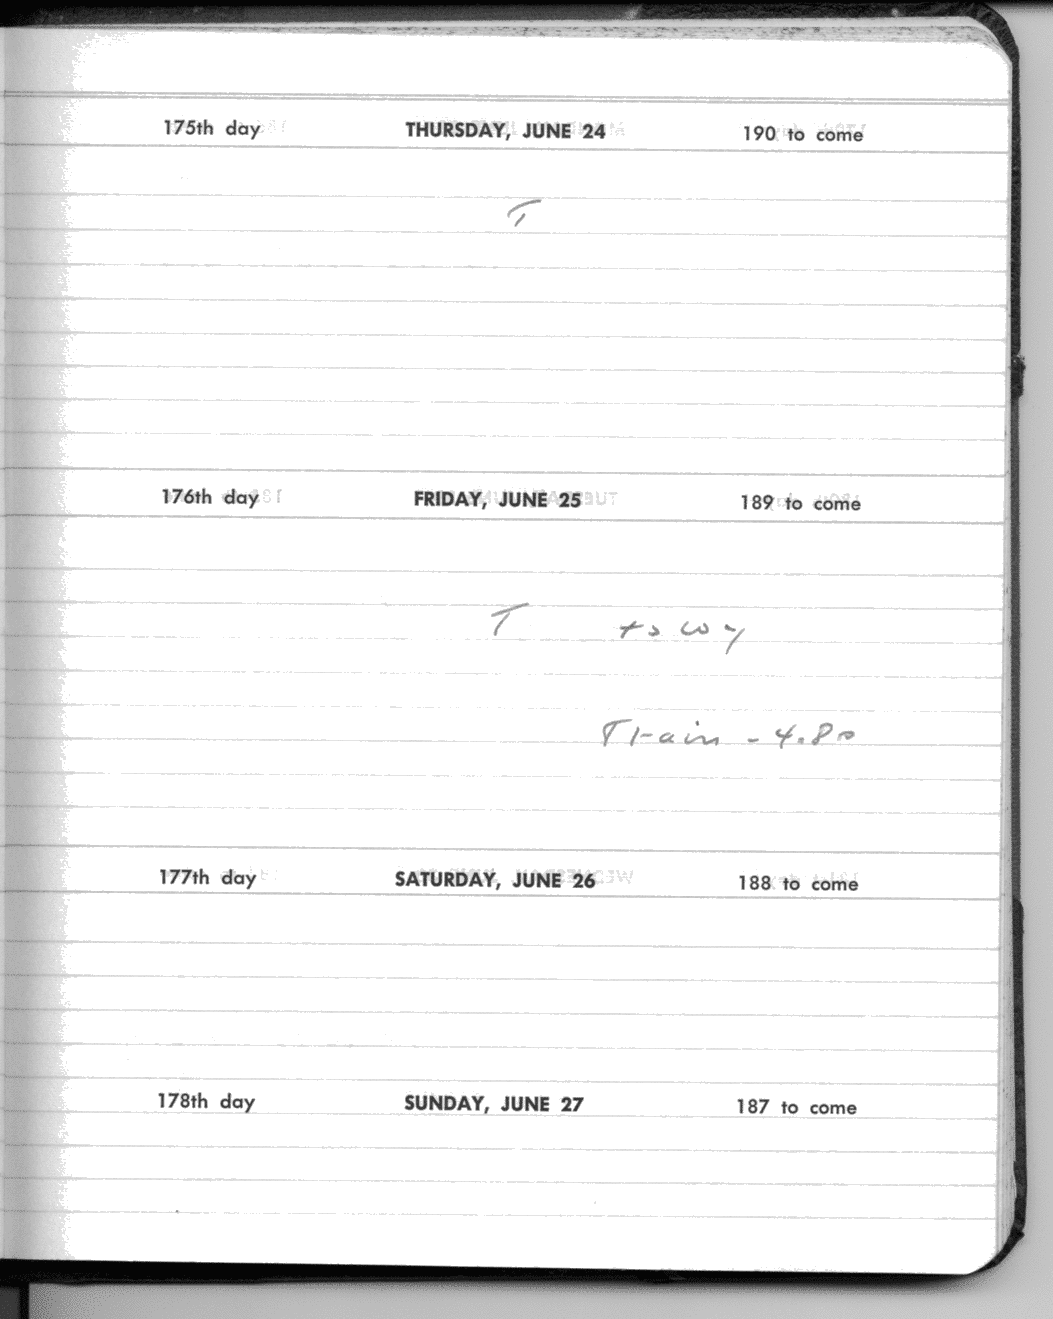 175th day THURSDAY, JUNE 24 190 to come
T
176th day FRIDAY, JUNE 25 189 to come
T to
Train - 4.80
177th day SATURDAY, JUNE 26 188 to come
178th day SUNDAY, JUNE 27 187 to come